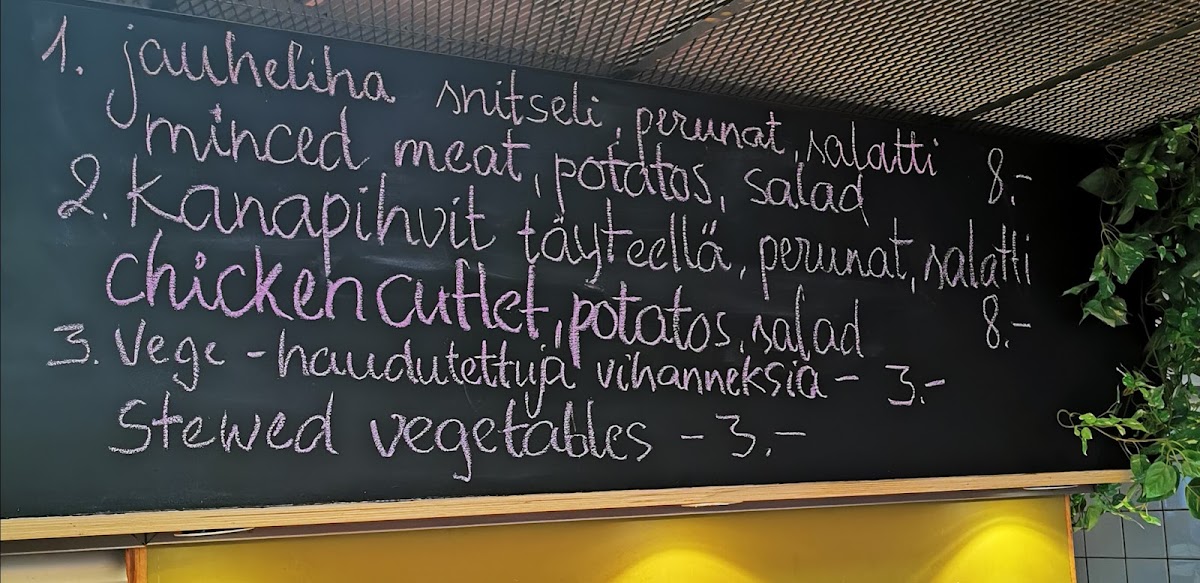 1. jauheliha snitseli, perunat, salatti
minced meat, potatos, salad 8.-
2. Kanapihvit täyteellä, perunat, salatti
chicken cutlet, potatos, salad 8.-
3. Vege - haudutettuja vihanneksia - 3.-
Stewed vegetables - 3.-